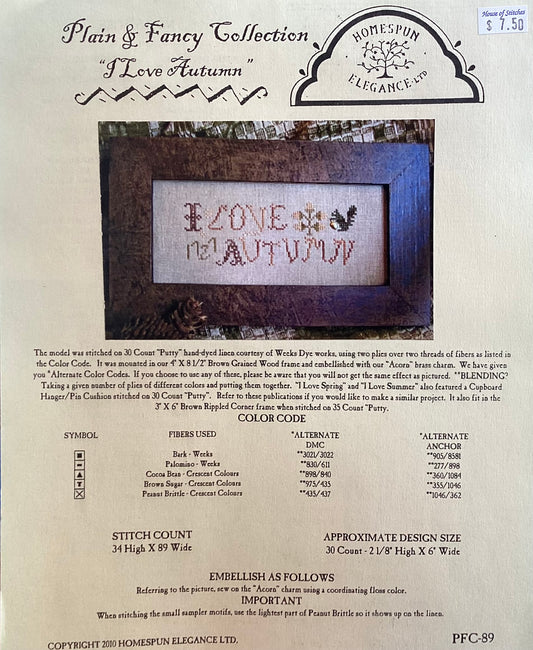 House of Stitches
$ 7.50
Plain & Fancy Collection
"I Love Autumn"
HOMESPUN
ELEGANCE LTD
I LOVE
AUTUMN
The model was stitched on 30 Count "Putty" hand-dyed linen courtesy of Weeks Dye works, using two plies over two threads of fibers as listed in
the Color Code. It was mounted in our 4" X 8 1/2" Brown Grained Wood frame and embellished with our "Acorn" brass charm. We have given
you *Alternate Color Codes. If you choose to use any of these, please be aware that you will not get the same effect as pictured. **BLENDING?
Taking a given number of plies of different colors and putting them together. "I Love Spring" and "I Love Summer" also featured a Cupboard
Hanger/Pin Cushion stitched on 30 Count "Putty". Refer to these publications if you would like to make a similar project. It also fit in the
3" X 6" Brown Rippled Corner frame when stitched on 35 Count "Putty.
COLOR CODE
SYMBOL FIBERS USED *ALTERNATE *ALTERNATE
DMC ANCHOR
Bark - Weeks **3021/3022 **905/8581
Palomino - Weeks **830/611 **277/898
Cocoa Bean - Crescent Colours **898/840 **360/1084
Brown Sugar - Crescent Colours **975/435 **355/1046
Peanut Brittle - Crescent Colours **435/437 **1046/362
STITCH COUNT APPROXIMATE DESIGN SIZE
34 High X 89 Wide 30 Count - 2 1/8" High X 6" Wide
EMBELLISH AS FOLLOWS
Referring to the picture, sew on the "Acorn" charm using a coordinating floss color.
IMPORTANT
When stitching the small sampler motifs, use the lightest part of Peanut Brittle so it shows up on the linen.
COPYRIGHT 2010 HOMESPUN ELEGANCE LTD. PFC-89